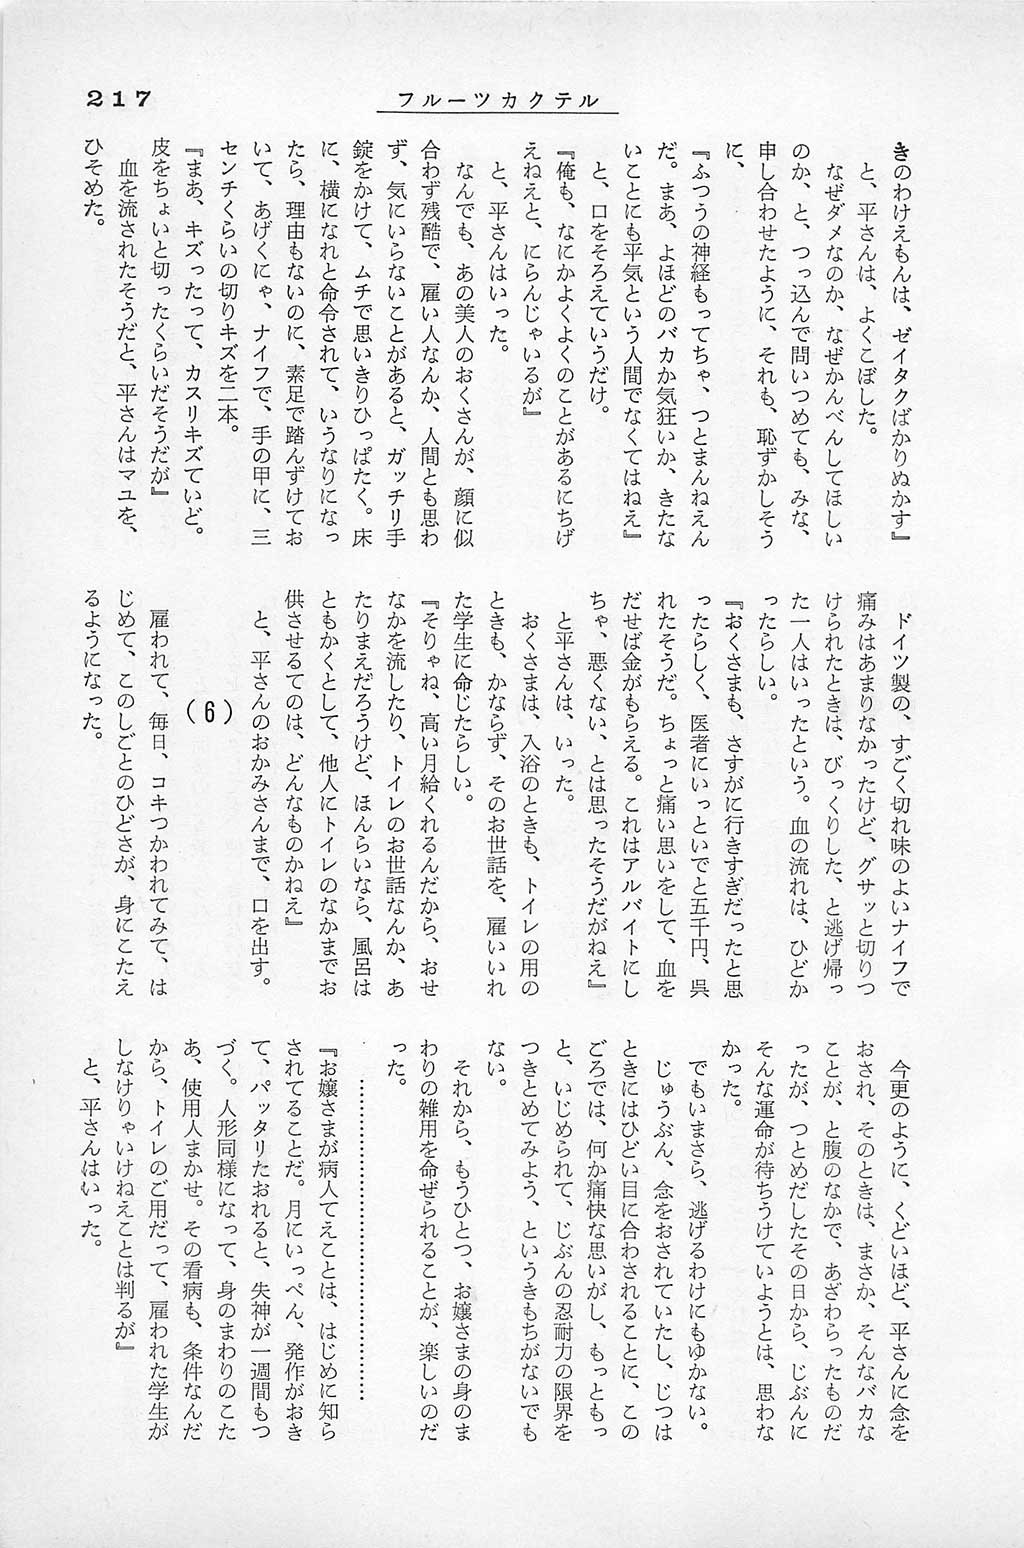 217
フルーツカクテル
きのわけえもんは、ゼイタクばかりぬかす』
と、平さんは、よくこぼした。
なぜダメなのか、なぜかんべんしてほしい
のか、と、つっ込んで問いつめても、みな、
申し合わせたように、それも、恥ずかしそう
に、
『ふつうの神経もってちゃ、つとまんねえん
だ。まあ、よほどのバカか気狂いか、きたな
いことにも平気という人間でなくてはねえ』
と、口をそろえていうだけ。
『俺も、なにかよくよくのことがあるにちげ
えねえと、にらんじゃいるが』
と、平さんはいった。
なんでも、あの美人のおくさんが、顔に似
合わず残酷で、雇い人なんか、人間とも思わ
ず、気にいらないことがあると、ガッチリ手
錠をかけて、ムチで思いきりひっぱたく。床
に、横になれと命令されて、いうなりになっ
たら、理由もないのに、素足で踏んずけてお
いて、あげくにゃ、ナイフで、手の甲に、三
センチくらいの切りキズを二本。
『まあ、キズったって、カスリキズていど。
皮をちょいと切ったくらいだそうだが』
血を流されたそうだと、平さんはマユを、
ひそめた。
ドイツ製の、すごく切れ味のよいナイフで
痛みはあまりなかったけど、グサッと切りつ
けられたときは、びっくりした、と逃げ帰っ
た一人はいったという。血の流れは、ひどか
ったらしい。
『おくさまも、さすがに行きすぎだったと思
ったらしく、医者にいっといでと五千円、呉
れたそうだ。ちょっと痛い思いをして、血を
だせば金がもらえる。これはアルバイトにし
ちゃ、悪くない、とは思ったそうだがねえ』
と平さんは、いった。
おくさまは、入浴のときも、トイレの用の
ときも、かならず、そのお世話を、雇いいれ
た学生に命じたらしい。
『そりゃね、高い月給くれるんだから、おせ
なかを流したり、トイレのお世話なんか、あ
たりまえだろうけど、ほんらいなら、風呂は
ともかくとして、他人にトイレのなかまでお
供させるてのは、どんなものかねえ』
と、平さんのおかみさんまで、口を出す。
(6)
雇われて、毎日、コキつかわれてみて、は
じめて、このしごとのひどさが、身にこたえ
るようになった。
今更のように、くどいほど、平さんに念を
おされ、そのときは、まさか、そんなバカな
ことが、と腹のなかで、あざわらったものだ
ったが、つとめだしたその日から、じぶんに
そんな運命が待ちうけていようとは、思わな
かった。
でもいまさら、逃げるわけにもゆかない。
じゅうぶん、念をおされていたし、じつは
ときにはひどい目に合わされることに、この
ごろでは、何か痛快な思いがし、もっともっ
と、いじめられて、じぶんの忍耐力の限界を
つきとめてみよう、というきもちがないでも
ない。
それから、もうひとつ、お嬢さまの身のま
わりの雑用を命ぜられることが、楽しいのだ
った。
………………………………………
『お嬢さまが病人てえことは、はじめに知ら
されてることだ。月にいっぺん、発作がおき
て、パッタリたおれると、失神が一週間もつ
づく。人形同様になって、身のまわりのこた
あ、使用人まかせ。その看病も、条件なんだ
から、トイレのご用だって、雇われた学生が
しなけりゃいけねえことは判るが』
と、平さんはいった。